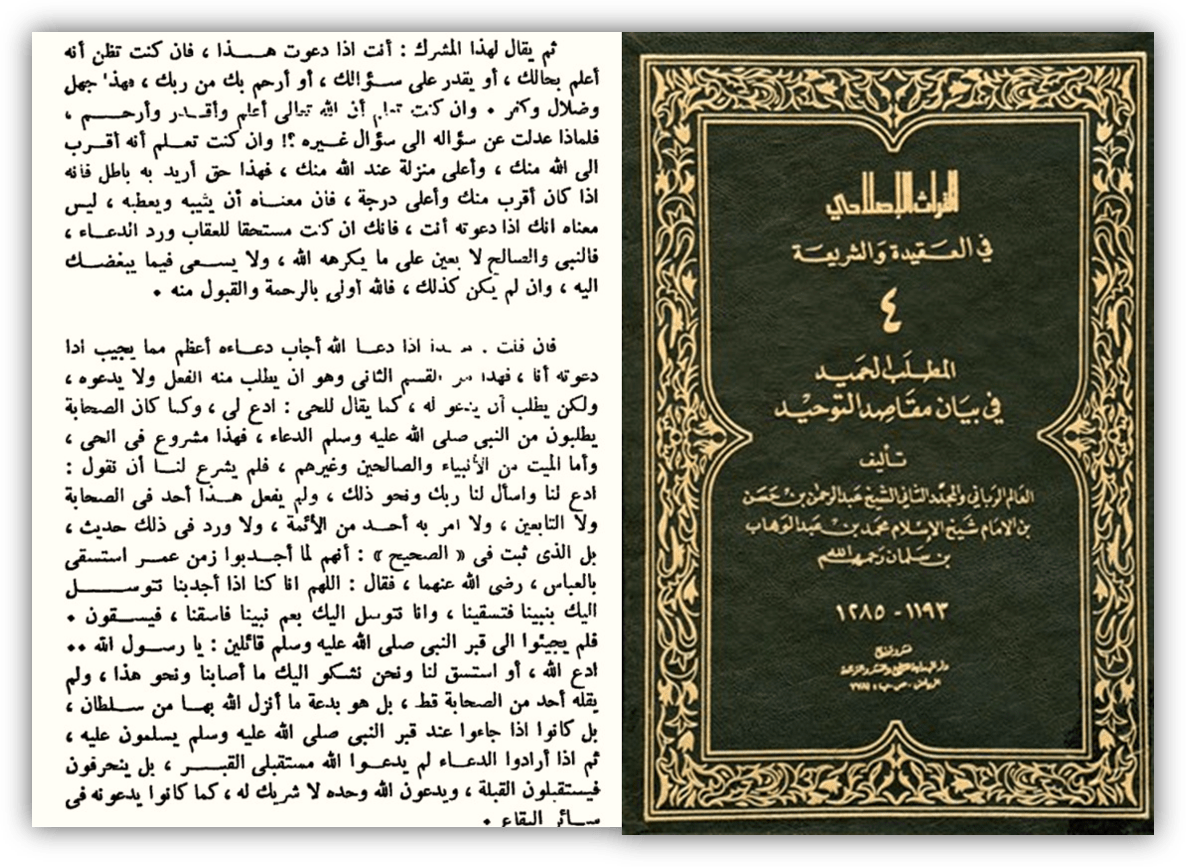 ثم يقال لهذا المشرك : أنت اذا دعوت هـــذا ، فان كنت تظن أنه
أعلم بحالك ، أو يقدر على ســؤالك ، أو أرحم بك من ربك ، فهذا جهل
وضلال وكفر ٠ وان كنت تعلم أن الله تعالى أعلم وأقــدر وأرحـــم ،
فلماذا عدلت عن سؤاله الى سؤال غيــره ؟! وان كنت تعــلم أنه أقــرب
الى الله منك ، وأعلى منزلة عند الله منك ، فهذا حق أريد به باطل فانه
اذا كان أقرب منك وأعلى درجة ، فان معنــاه أن يثيبه ويعطيه ، ليس
معناه انك اذا دعوته أنت ، فانك ان كنت مستحقا للعقاب ورد الدعــاء ،
فالنبى والصالح لا يعين على ما يكرهه الله ، ولا يســعى فيما يبغضــك
اليه ، وان لم يكن كذلك ، فالله أولى بالرحمة والقبول منه ٠
فان قلت : هــذا اذا دعــا الله أجاب دعــاءه أعظم مما يجيب اذا
دعوته أنا ، فهذا هو القسم الثانى وهو ان يطلب منه الفعل ولا يدعوه ،
ولكن يطلب أن يدعو له ، كما يقال للحى : ادع لى ، وكما كان الصحابة
يطلبون من النبى صلى الله عليه وسلم الدعاء ، فهذا مشروع فى الحى ،
وأما الميت من الأنبياء والصالحين وغيرهم ، فلم يشرع لنــا أن تقول :
ادع لنا واسأل لنا ربك ونحو ذلك ، ولم يفعل هــذا أحد فى الصحابة
ولا التابعين ، ولا امر به أحــد من الأئمة ، ولا ورد فى ذلك حديث ،
بل الذى ثبت فى « الصحيح » : أنهم لما أجــدبوا زمن عمــر استسقى
بالعباس ، رضى الله عنهما ، فقال : اللهم انا كنا اذا أجدبنا نتوســـل
اليك بنبينا فتسقينا ، وانا نتوسل اليك بعم نبينا فاسقنا ، فيســقون ٠
فلم يجيئوا الى قبر النبى صلى الله عليه وسلم قائلين : يا رســول الله ٠٠
ادع الله ، أو استسق لنا ونحن نشكو اليك ما أصابنا ونحو هذا ، ولم
يقله أحد من الصحابة قط ، بل هو بدعة ما أنزل الله بهــا من ســلطان ،
بل كانوا اذا جاءوا عند قبر النبى صلى الله عليه وسلم يسلمون عليه ،
ثم اذا أرادوا الدعــاء لم يدعــوا الله مستقبلى القبــــر ، بل ينحرفون
فيستقبلون القبلة ، ويدعون الله وحده لا شريك له ، كما كانوا يدعونه فى
ســائر البقاع ٠
التراث الإسلامي
في العقيدة والشريعة
٤
المطلب الحميد
في بيان مقاصد التوحيد
تأليف
العالم الرباني والمجدد الثاني الشيخ عبد الرحمن بن حسن
بن الامام شيخ الإسلام محمد بن عبد الوهاب
بن سلمان رحمهم الله
١١٩٣ - ١٢٨٥